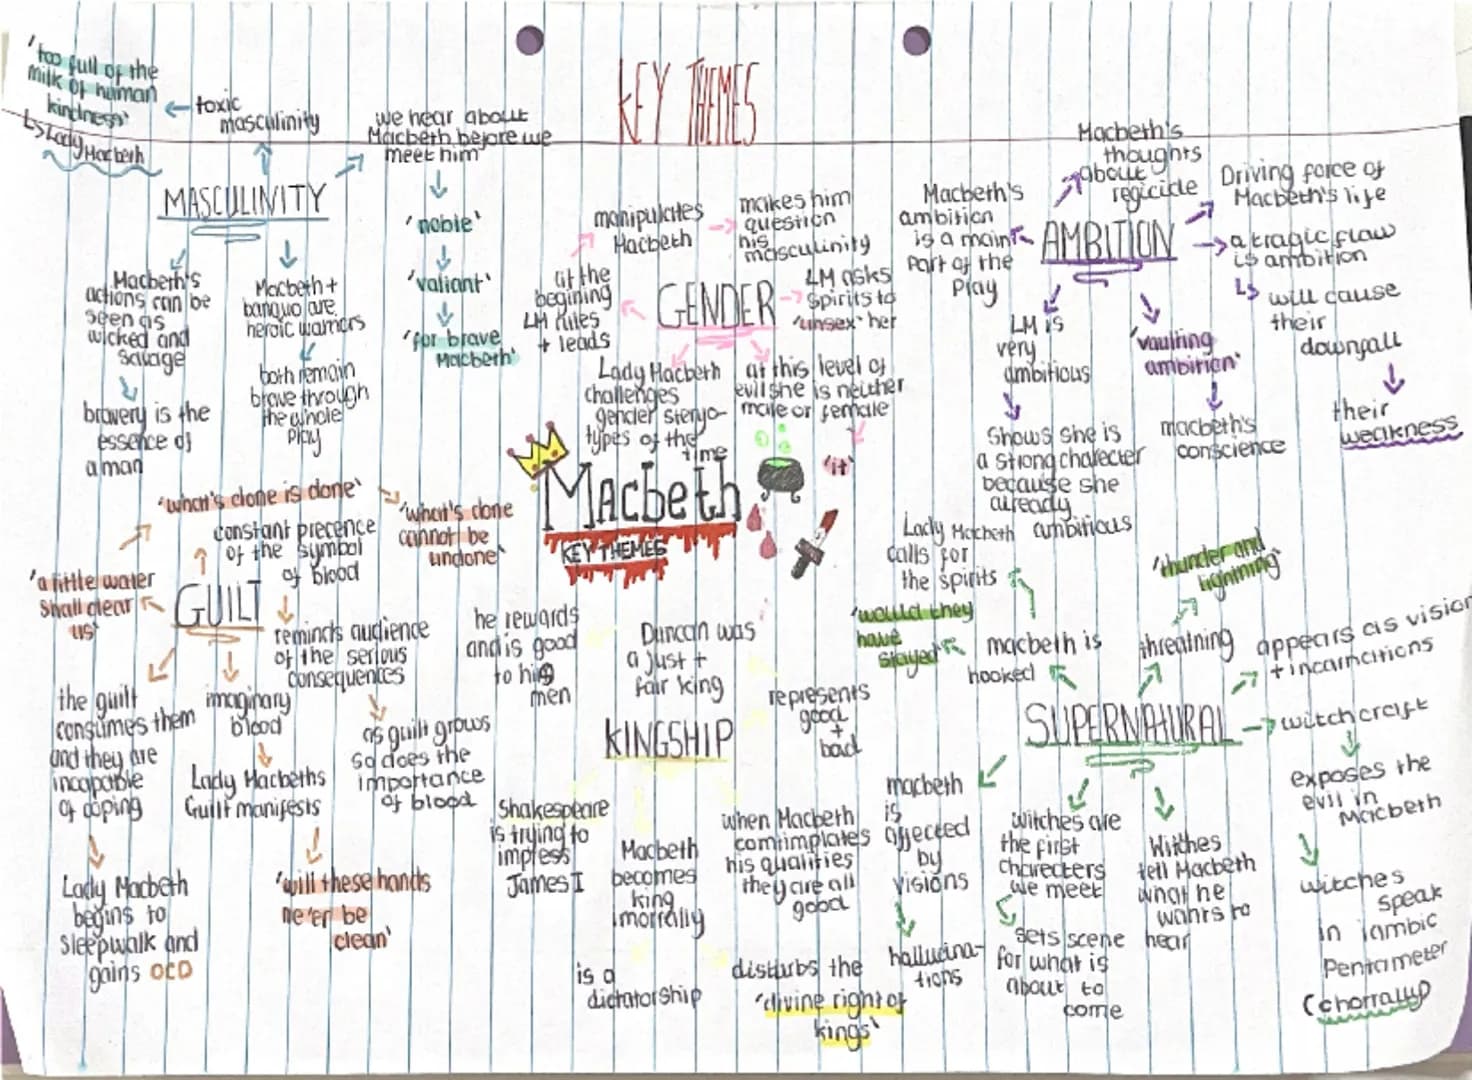 KEY THEMES
'too full of the
milk of human
kindness'
Lady Macbeth
toxic
masculinity
we hear about
Macbeth before we
meet him
'noble'
'valiant'
'for brave
Macbeth'
MASCULINITY
Macbeth's
actions can be
seen as
wicked and
savage
bravery is the
essence of
a man
Macbeth +
banquo are
heroic warriors
both remain
brave through
the whole
play
GENDER
manipulates
Macbeth
makes him
question
his
masculinity
at the
begining
LM rules
+ leads
LM asks
spirits to
'unsex' her
Lady Macbeth
challenges
gender steryo-
types of the
time
at this level of
evil she is neither
male or female
'it'
AMBITION
Macbeth's
thoughts
about
regicide
Driving force of
Macbeth's life
Macbeth's
ambition
is a main
part of the
play
a tragic flaw
is ambition
will cause
their
downfall
their
weakness
LM is
very
ambitious
shows she is
a strong charecter
because she
already
ambitious
'vaulting
ambition'
macbeth's
conscience
Macbeth
KEY THEMES
GUILT
'what's done is done'
'what's done
cannot be
undone'
constant precence
of the symbol
of blood
'a little water
shall clear
us'
reminds audience
of the serious
consequences
as guilt grows
so does the
importance
of blood
the guilt
consumes them
and they are
incapable
of coping
Lady Macbeth
begins to
sleepwalk and
gains OCD
imaginary
blood
Lady Macbeths
Guilt manifests
'will these hands
ne'er be
clean'
KINGSHIP
he rewards
and is good
to his
men
Duncan was
a just +
fair king
represents
good
+
bad
Shakespeare
is trying to
impress
James I
Macbeth
becomes
king
imorrally
is a
dictatorship
when Macbeth
comtimplates
his qualities
they are all
good
disturbs the
'divine right of
kings'
SUPERNATURAL
Lady Macbeth
calls for
the spirits
'would they
have
stayed'
macbeth is
hooked
'thunder and
lightning'
threatning
appears as vision
+ incarnations
witchcraft
exposes the
evil in
Macbeth
witches
speak
in iambic
Pentameter
macbeth
is
affected
by
visions
hallucina-
tions
witches are
the first
charecters
we meet
sets scene
for what is
about to
come
Witches
tell Macbeth
what he
wants to
hear